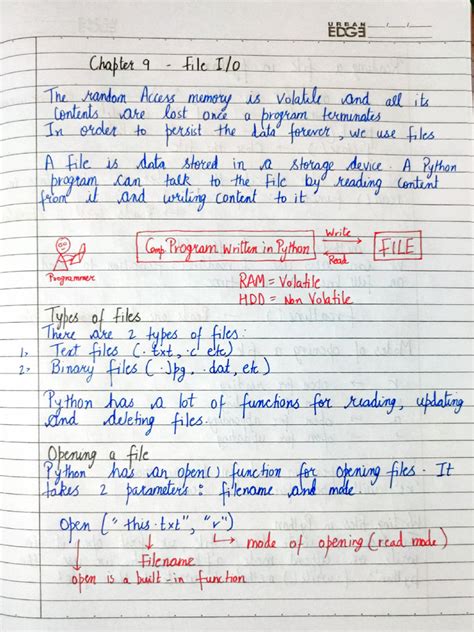 URBAN
EDGE
Chapter 9 - File I/O
The random Access memory is volatile and all its
contents are lost once a program terminates
In order to persist the data forever, we use files
A file is data stored in a storage device. A Python
program can talk to the file by reading content
from it and writing content to it
Programmer
Program Written in Python
Write
Read
FILE
RAM = Volatile
HDD = Non Volatile
Types of Files
There are 2 types of files:
1> Text files (.txt, .c etc)
2> Binary files (.Jpg, .dat, etc)
Python has a lot of functions for reading, updating
and deleting files.
Opening a file
Python has an open() function for opening files. It
takes 2 parameters: filename and mode.
open ("this.txt", "r")
mode of opening (read mode)
Filename
open is a built-in function